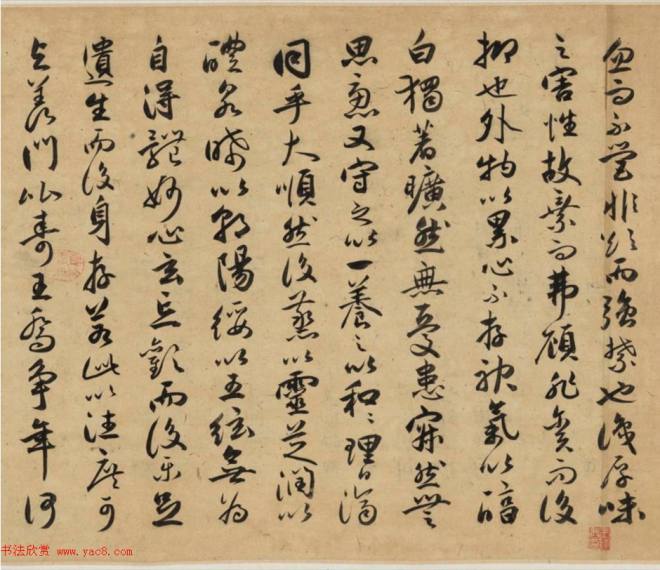 忽而不營非欲而强禁也識厚味
之害性故棄而弗顧非貪而後
抑也外物以累心不存神氣以醇
白獨著曠然無憂患寂然無
思慮又守之以一養之以和〻理日濟
同乎大順然後蒸以靈芝潤以
醴泉晞以朝陽綏以五絃無為
自得體妙心玄忘歡而後樂足
遺生而後身存若此以往庶可
与羨門比壽王喬爭年何
书法欣赏 www.yac8.com